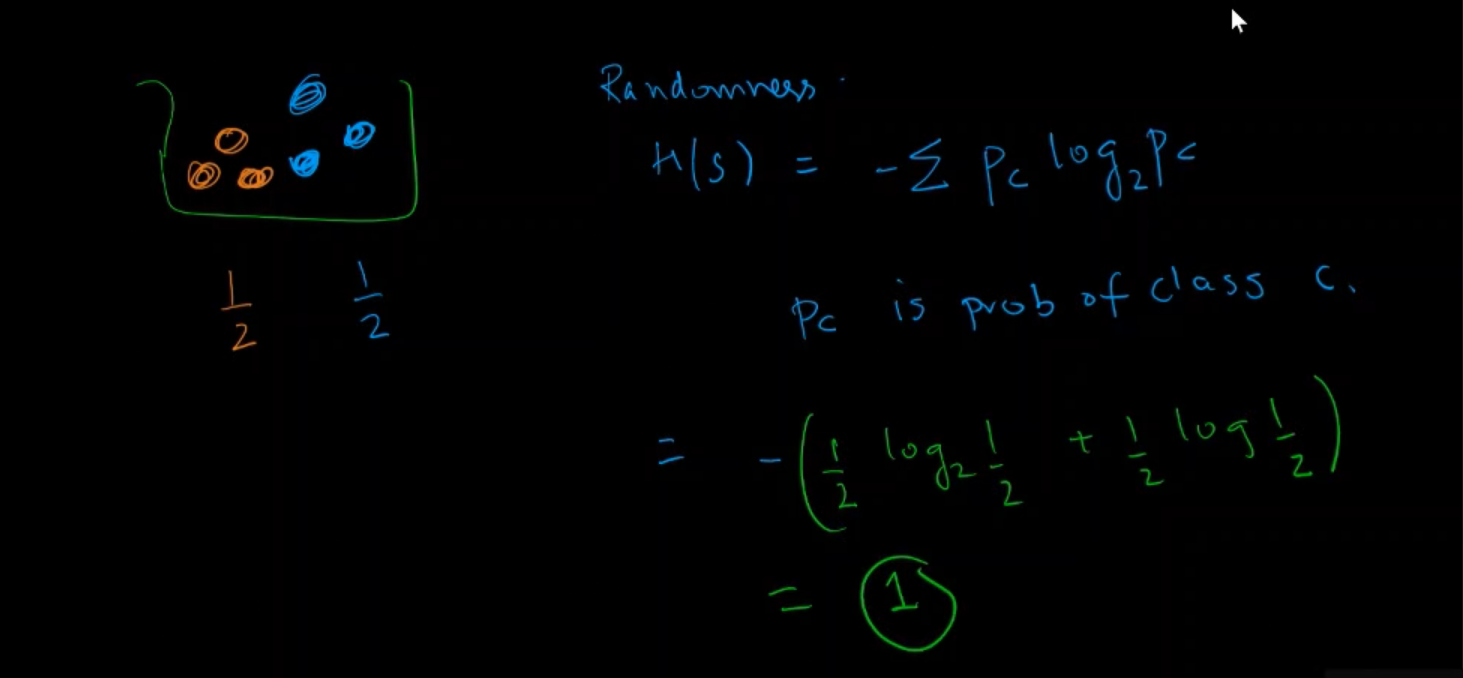 Randomness.
H(S) = -Σ Pc log₂ Pc
1/2 1/2
Pc is prob of class C.
= -(1/2 log₂ 1/2 + 1/2 log 1/2)
= 1